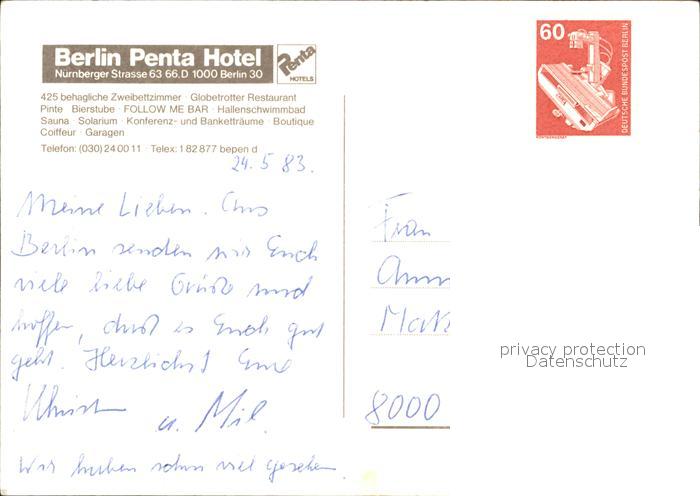 Berlin Penta Hotel
Nürnberger Strasse 63 66.D 1000 Berlin 30
Penta
HOTELS
425 behagliche Zweibettzimmer · Globetrotter Restaurant
Pinte · Bierstube · FOLLOW ME BAR · Hallenschwimmbad
Sauna · Solarium · Konferenz- und Banketträume · Boutique
Coiffeur · Garagen
Telefon: (030) 24 00 11 · Telex: 1 82 877 bepen d
24. 5 83.
Meine Lieben. Aus
Berlin senden wir Euch
viele liebe Grüße und
hoffen, daß es Euch gut
geht. Herzlichst Eure
u.
Wir haben schon viel gesehen.
60
DEUTSCHE BUNDESPOST BERLIN
RÖNTGENGERÄT
Frau
8000
privacy protection
Datenschutz